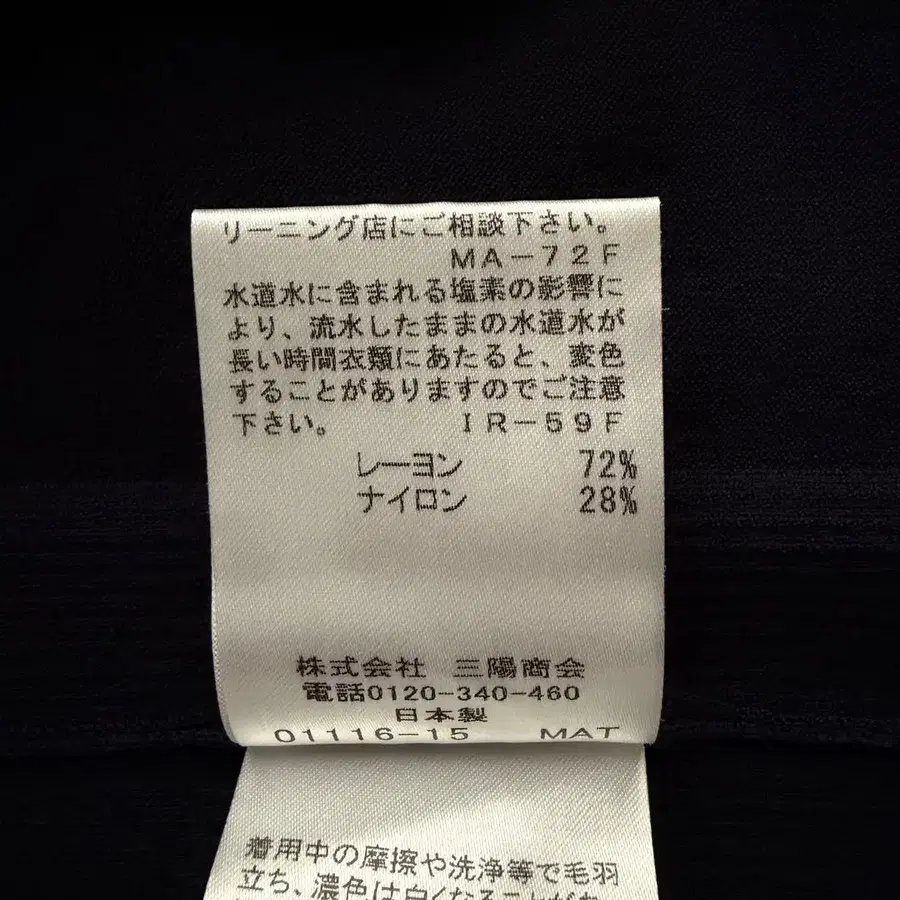 リーニング店にご相談下さい。
MA-72F
水道水に含まれる塩素の影響に
より、流水したままの水道水が
長い時間衣類にあたると、変色
することがありますのでご注意
下さい。 IR-59F
レーヨン 72%
ナイロン 28%
株式会社 三陽商会
電話0120-340-460
日本製
01116-15 MAT
着用中の摩擦や洗浄等で毛羽
立ち、濃色は白くなることがあ